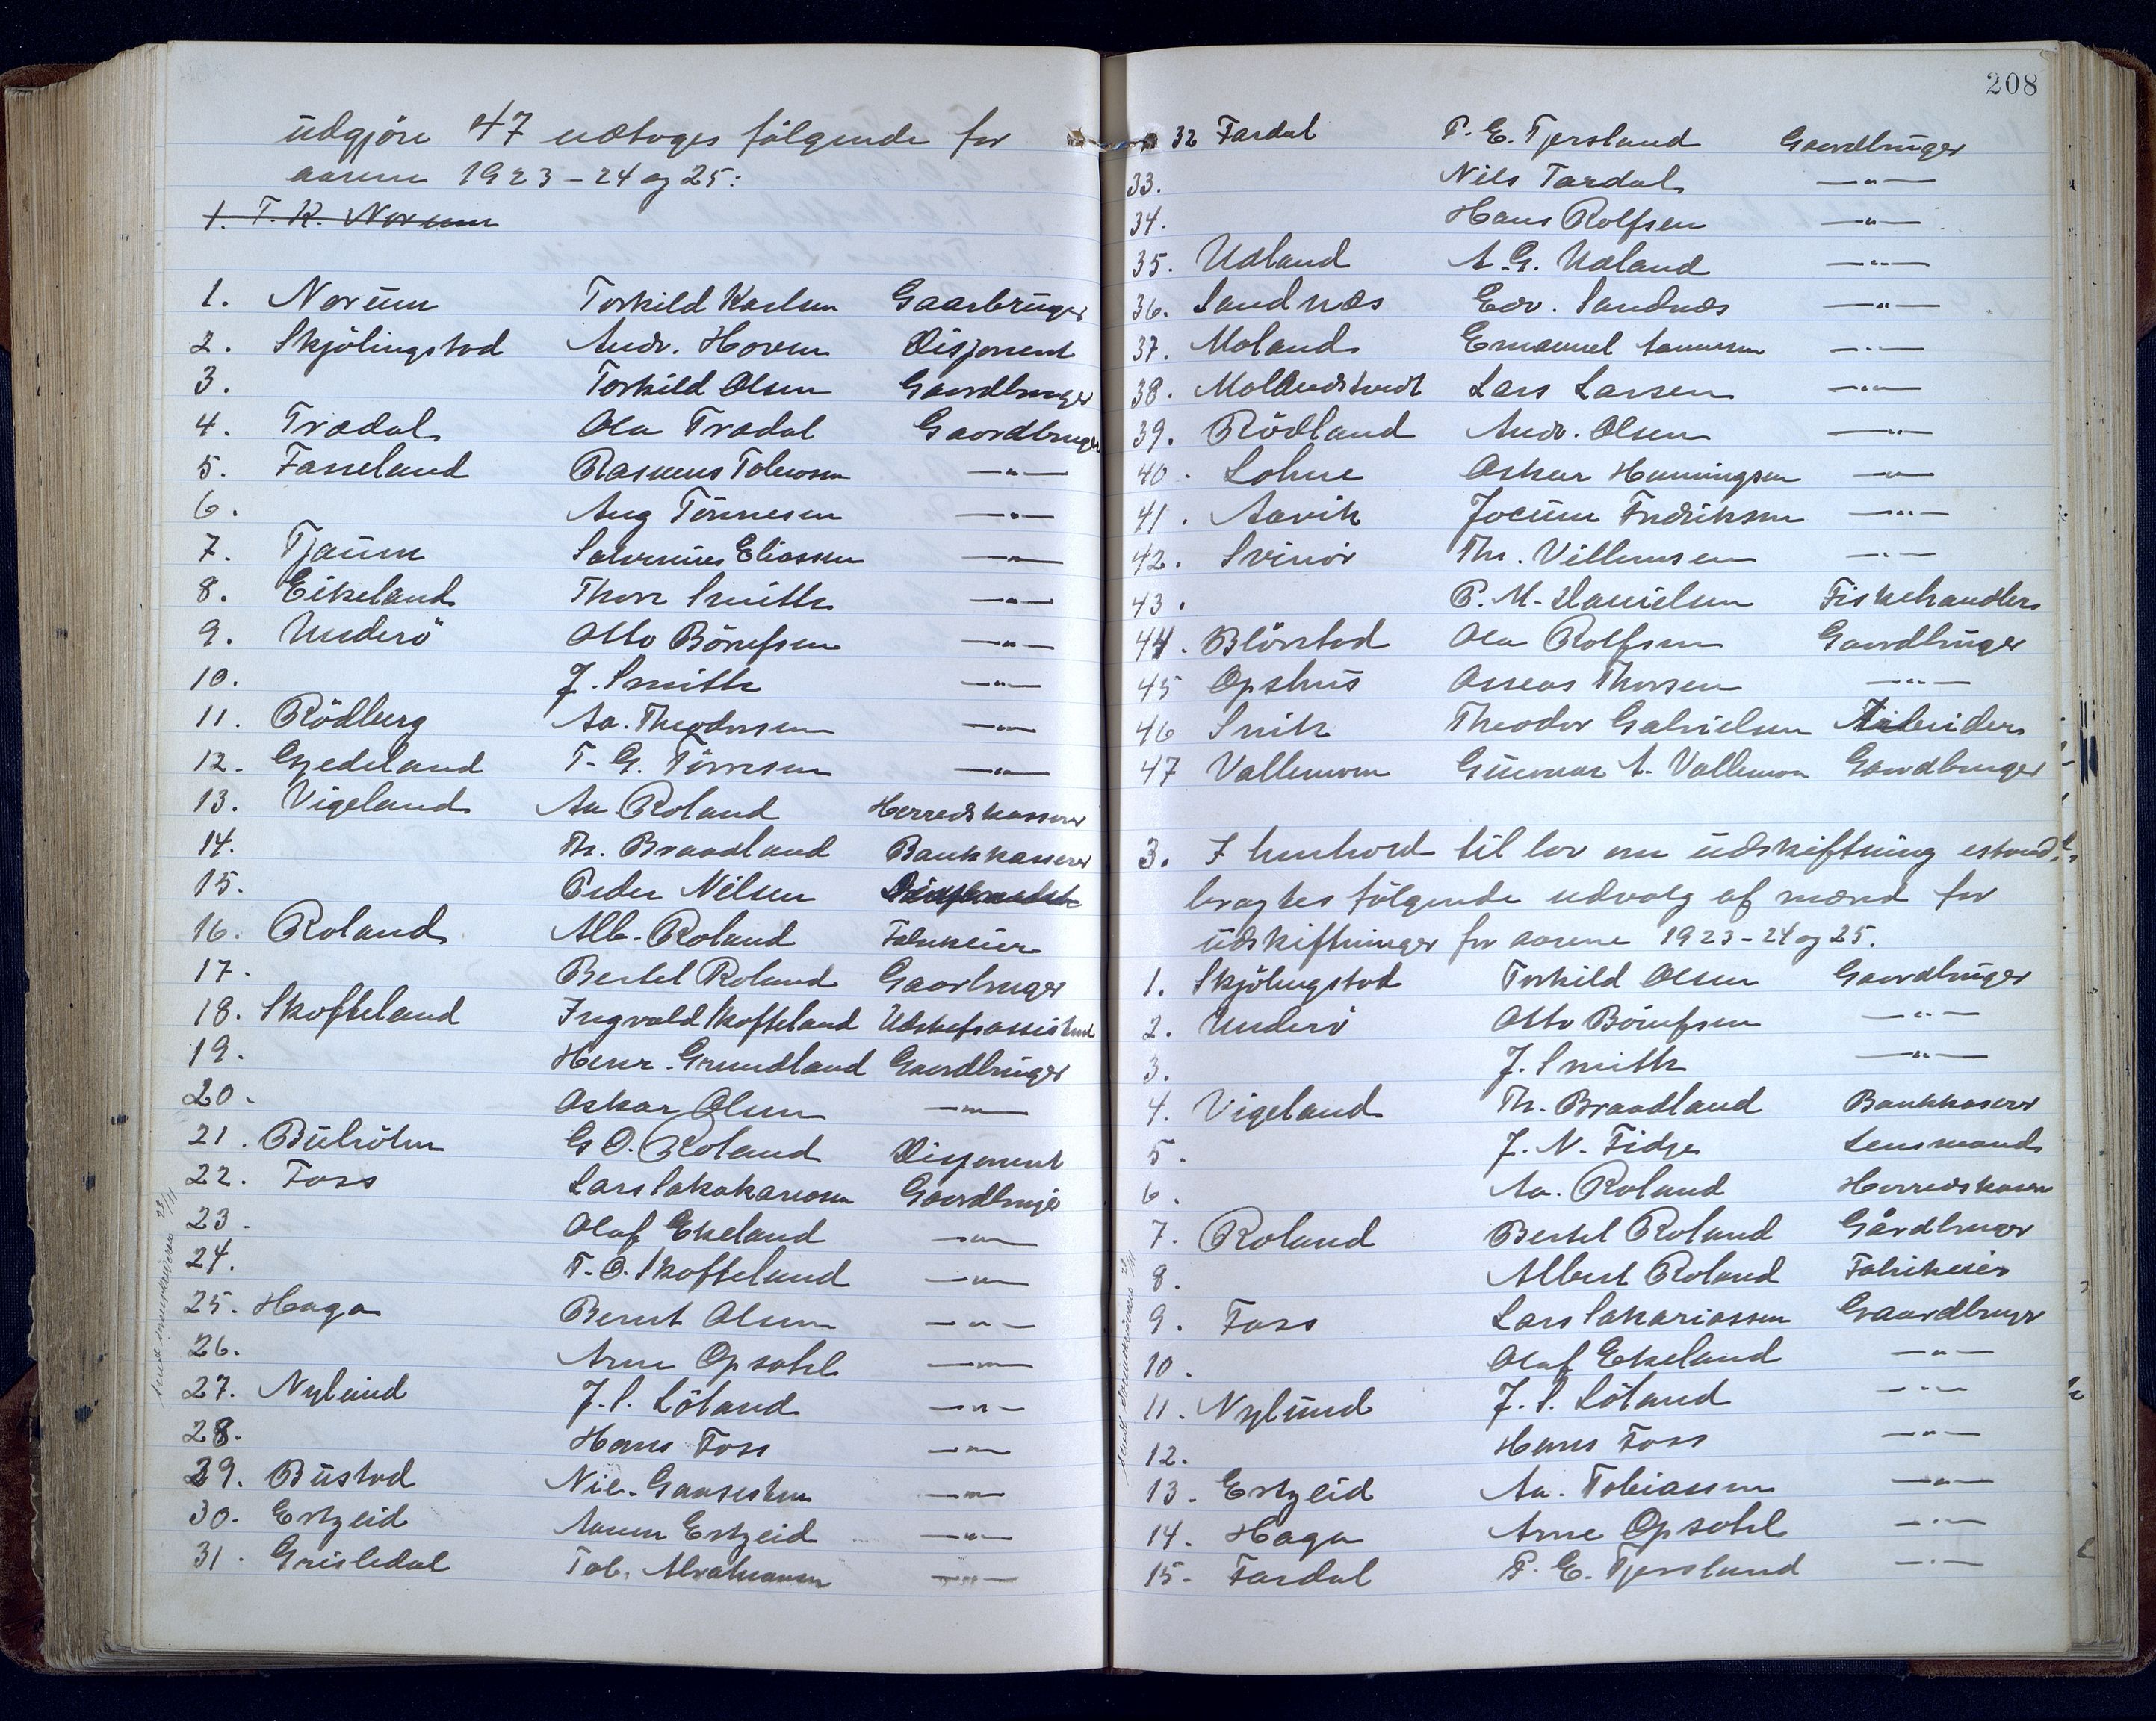 udgjöre 47 udtoges fölgende for
aarene 1923-24 og 25:
1. T. K. Norum
1. Norum Torkild Karlsen Gaarbruger
2. Skjölingstad Andr. Hoven Disponent
3. Torkild Olsen Gaardbruger
4. Trædal Ola Trædal Gaardbruger
5. Fasseland Rasmus Tolewsen —"—
6. Aug Tönnesen —"—
7. Tjaum Salvenius Eliassen —"—
8. Eikeland Thore Smith —"—
9. Underö Otto Börufsen —"—
10. J. Smith —"—
11. Rödberg Aa. Theodorsen —"—
12. Gjedeland T. G. Törresen —"—
13. Vigeland Aa Roland Herredskasserer
14. Th. Braadland Bankkasserer
15. Peder Nilsen
16. Roland Alb. Roland Fabrikeier
17. Bertel Roland Gaarbruger
18. Skofteland Ingvald Skofteland Udskifsassistent
19. Henr. Grundland Gaardbruger
20. Oskar Olsen —"—
21. Buhölm G O. Roland Disponent
22. Foss Lars Sakakariasen Gaardbruge
23. Olaf Ekeland —"—
24. T. O. Skofteland —"—
25. Haga Bernt Olsen —"—
26. Arne Opsahl —"—
27. Nylund J. S. Löland —"—
28. Hans Foss —"—
29. Bustad Nic. Gaaseston —"—
30. Ertzeid Aanen Ertzeid —"—
31. Grisledal Tob. Abrahamsen —"—
208
32 Fardal P. E. Tjersland Gaardbruger
33. Nils Fardal —"—
34. Hans Rolfsen —"—
35. Udland A. G. Udland —"—
36. Sandnæs Edv. Sandnæs —"—
37. Moland Emanuel Aanensen —"—
38. Molandstvedt Lars Larsen —"—
39. Rödland Andr. Olsen —"—
40. Lohne Oskar Henningsen —"—
41. Aavik Jocum Fredriksen —"—
42. Svinör Th. Villumsen —"—
43. P. M. Danielsen Fiskehandler
44. Blörstad Ola Rolfsen Gaardbruger
45 Opshus Asseas Thorsen —"—
46 Snik Theodor Gabrielsen Arbeider
47 Vallemoen Gunnar A. Vallemoen Gaardbruger
3. I henhold til lov om udskiftning istand-
bragtes fölgende udvalg af mænd for
udskiftninger for aarene 1923-24 og 25.
1. Skjölingstad Torkild Olsen Gaardbruger
2. Underö Otto Börufsen —"—
3. J. Smith —"—
4. Vigeland Th. Braadland Bankkaserer
5. J. N. Fidje Lensmand
6. Aa. Roland Herredskaserer
7. Roland Bertel Roland Gårdbruger
8. Albert Roland Fabrikeier
9. Foss Lars Sakariassen Gaardbruger
10. Olaf Ekeland —"—
11. Nylund J. S. Löland —"—
12. Hans Foss —"—
13. Ertzeid Aa. Tobiassen —"—
14. Haga Arne Opsahl —"—
15. Fardal P. E. Tjersland —"—